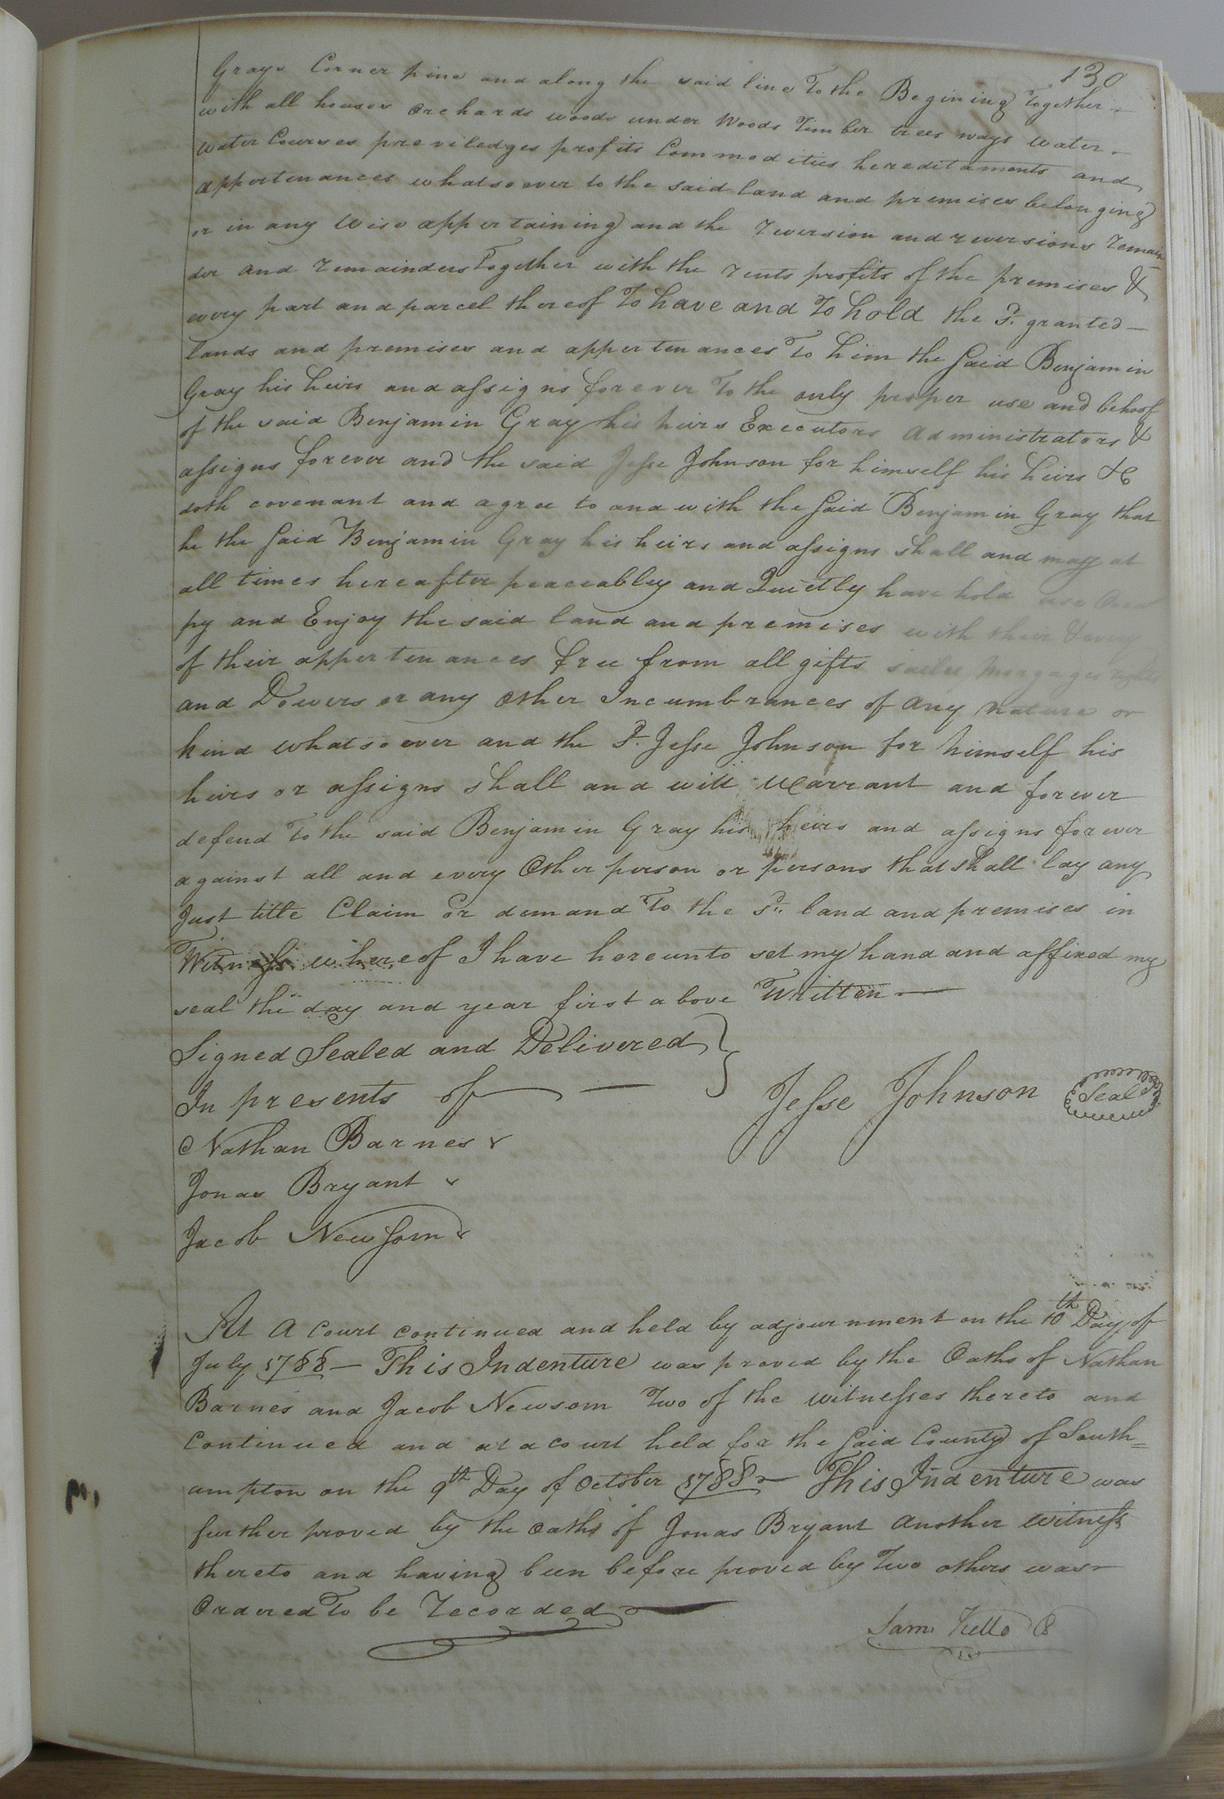 130
Grays Corner pine and along the said line To the Begining Together
with all houses orchards woods under Woods Timber trees ways water
water Courses previledges profits Commodities hereditaments and
appertenances whatsoever to the said land and premises belonging
or in any Wise appertaining and the reversion and reversions remain
der and remainders Together with the rents profits of the premises &
every part and parcel thereof To have and To hold the Sd. granted
lands and premises and appertenances To him the Said Benjamin
Gray his heirs and assigns forever To the only proper use and behoof
of the said Benjamin Gray his heirs Executors Administrators &
assigns forever and the said Jesse Johnson for himself his heirs &C
doth covenant and agree to and with the Said Benjamin Gray that
he the Said Benjamin Gray his heirs and assigns Shall and may at
all times hereafter peaceabley and Quietly have hold use Occu
py and Enjoy the said land and premises with their & every
of their appertenances free from all gifts sailes Morgages rights
and Dowers or any other Incumbrances of any nature or
kind whatsoever and the Sd. Jesse Johnson for himself his
heirs or assigns shall and will Warrant and forever
defend To the said Benjamin Gray his heirs and assigns forever
against all and every Other person or persons that Shall lay any
Just title Claim or demand To the Sd. land and premises in
Witness whereof I have hereunto set my hand and affixed my
seal the day and year first above Written
Signed Sealed and Delivered
In presents of
Jesse Johnson Seal
Nathan Barnes
Jonas Bryant
Jacob Newsom
At A Court continued and held by adjournment on the 10th Day of
July 1788 — This Indenture was proved by the Oaths of Nathan
Barnes and Jacob Newsom Two of the witnesses thereto and
Continued and at a court held for the Said County of South=
ampton on the 9th Day of October 1788 — This Indenture was
further proved by the oaths of Jonas Bryant Another witness
thereto and having been before proved by Two others was
Ordered To be recorded
Sam Kello C